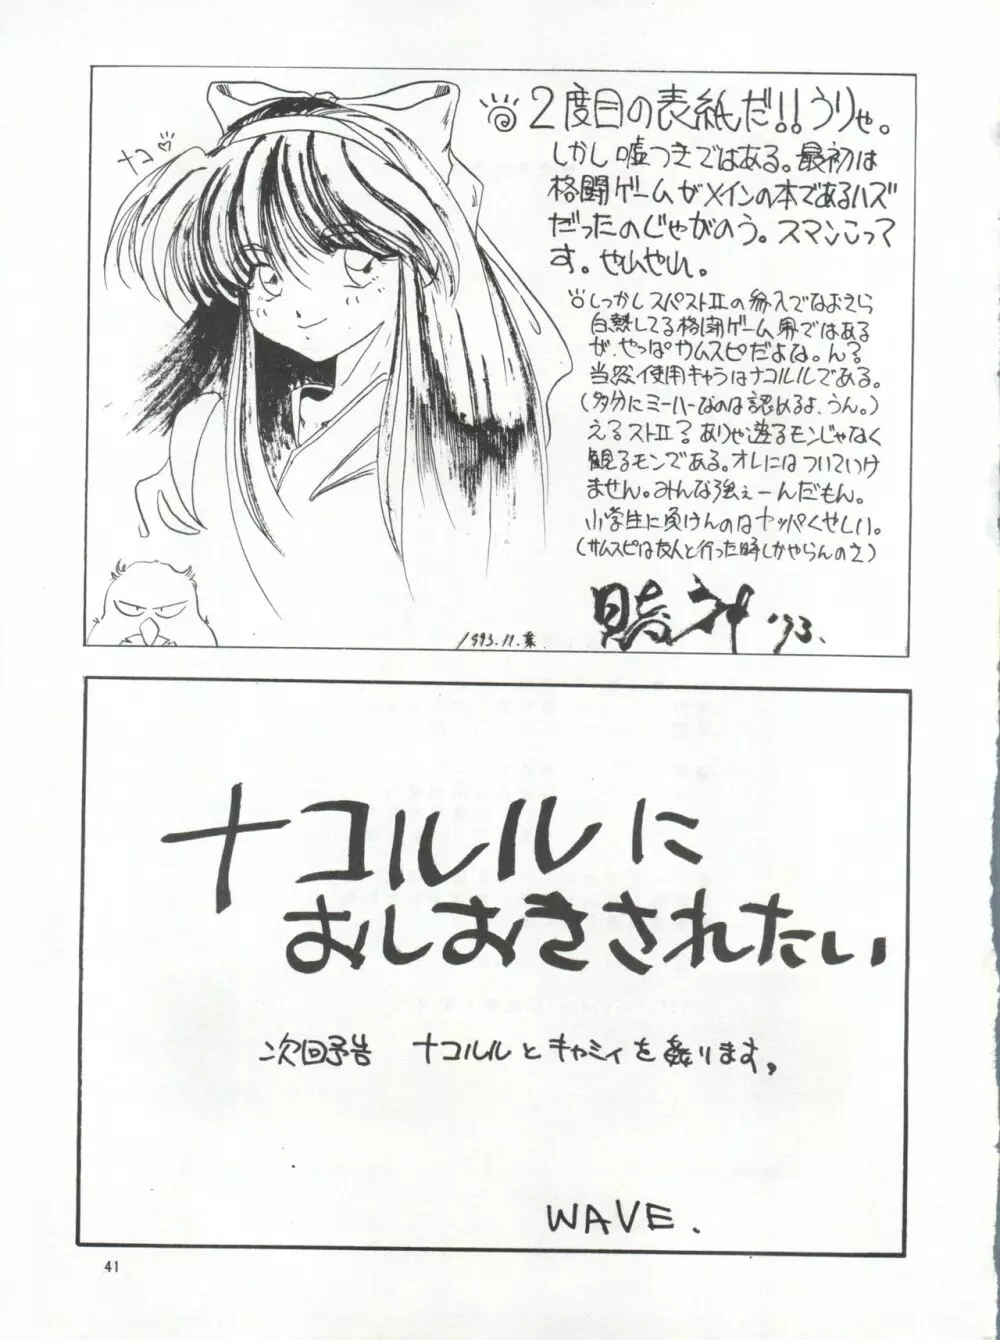 ナコ♡
2度目の表紙だ!!うりゃ。
しかし嘘つきではある。最初は
格闘ゲームがメインの本であるハズ
だったのじゃがのう。スマンこって
す。やれやれ。
しっかしスパストⅡの参入でなおさら
白熱してる格闘ゲーム界ではある
が、やっぱサムスピだよな。んで
当然使用キャラはナコルルである。
(多分にミーハーなのは認めるよ、うん。)
える ストⅡ? ありゃ遊るモンじゃなく
観るモンである。オレにはついていけ
ません。みんな強ェーんだもん。
小学生に負けんのはヤッパくやしい。
(サムスピは友人と行った時しかやらんのさ)
'93.
1993.11.
ナコルルに
おしおきされたい
次回予告 ナコルルとキャミィを姦ります。
WAVE.
41